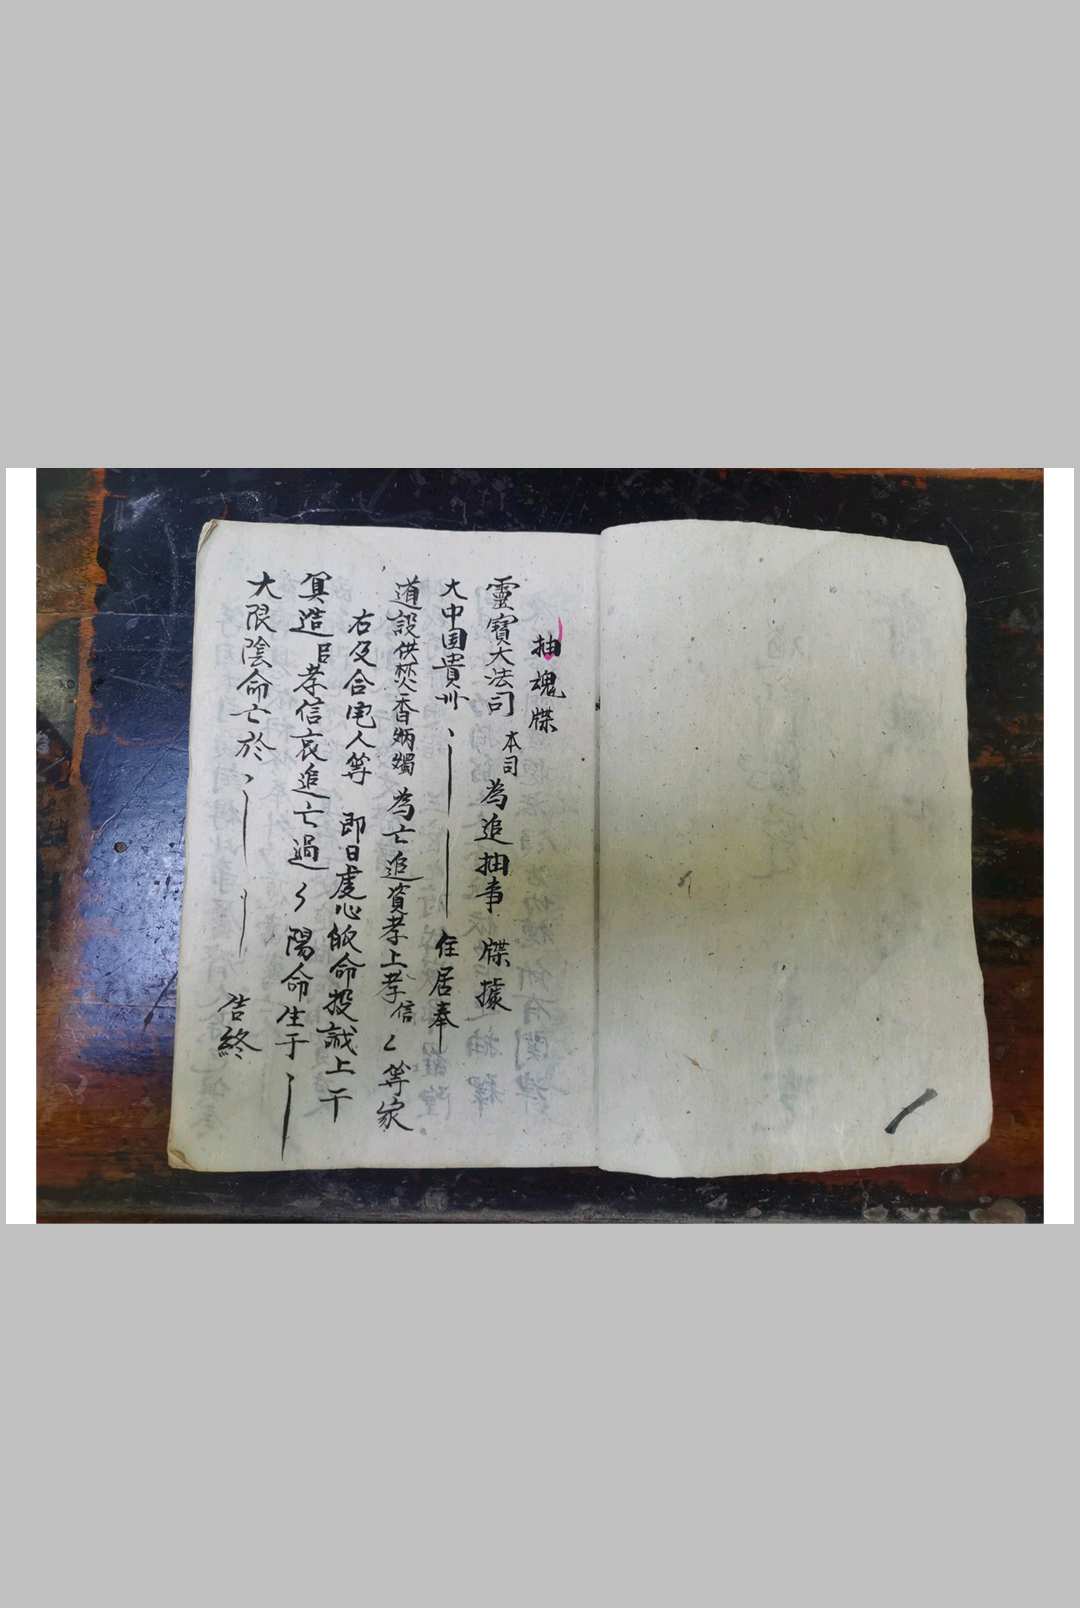 抽魂牒
靈寶大法司 本司 為追抽事 牒據
大中国貴州 住居奉
道設供焚香炳燭為亡追資孝上孝信等家
右及合宅人等 即日虔心皈命投誠上干
冥造 臣孝信哀追亡過 陽命生于
大限陰命亡於 告終